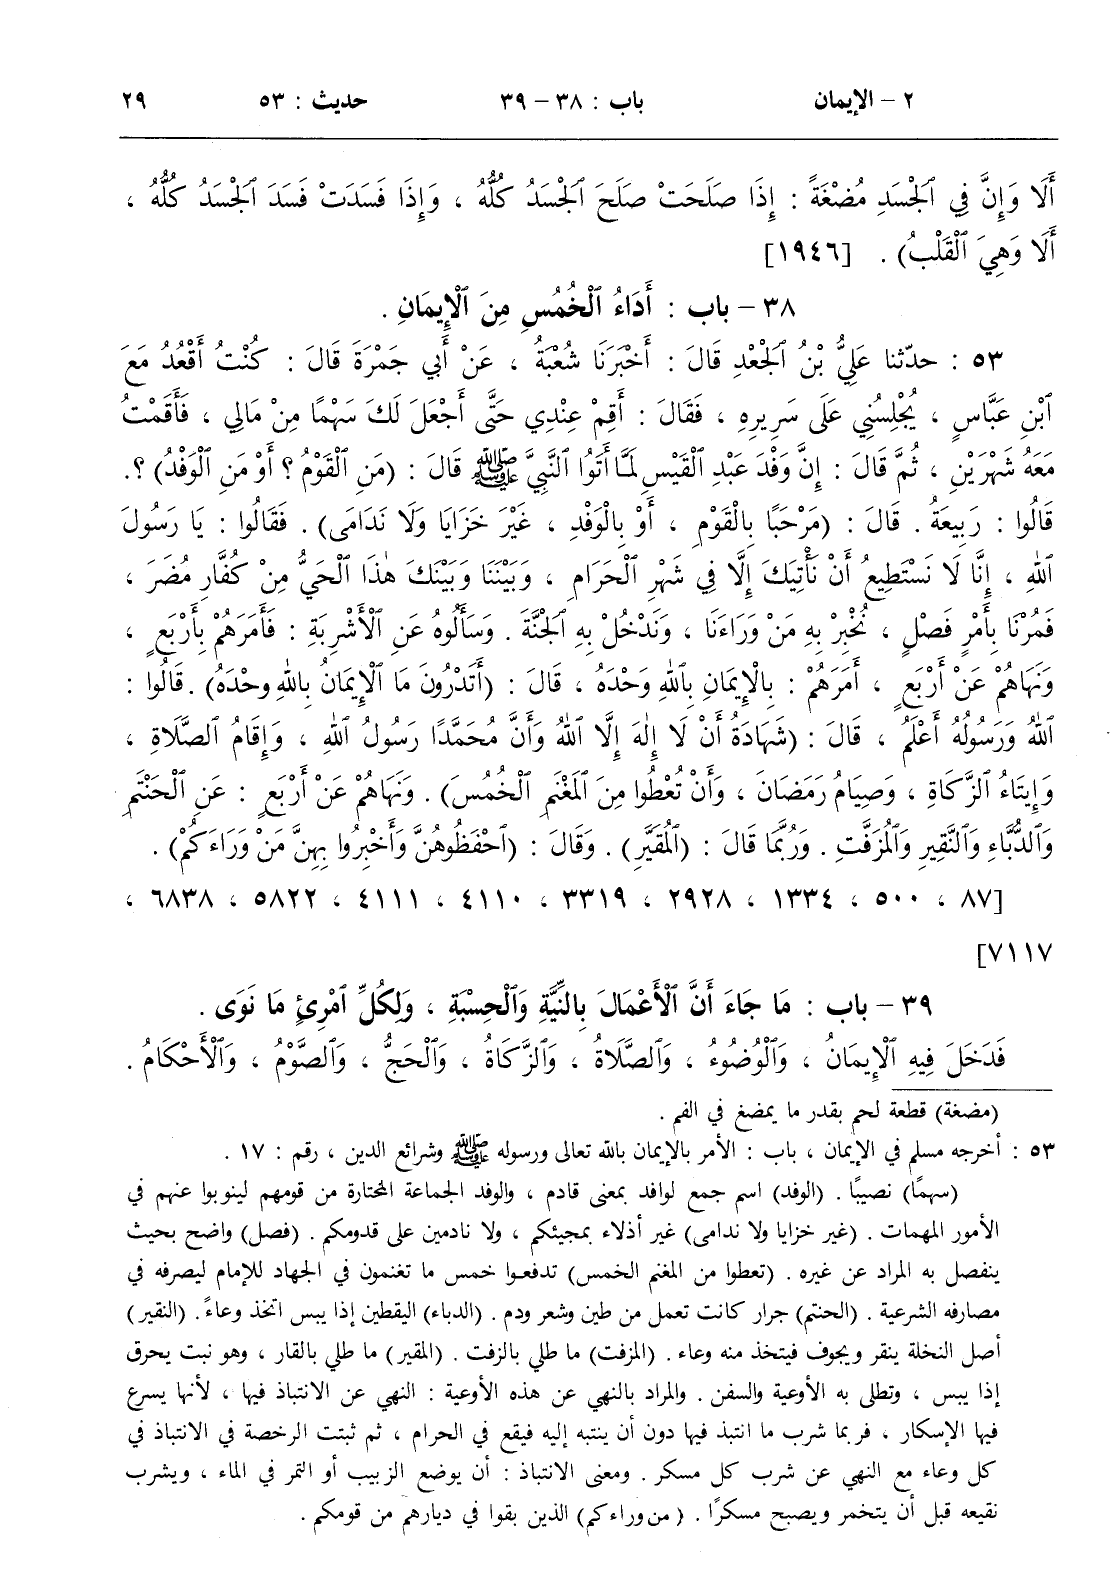 ٢ – الإيمان باب : ٣٨ – ٣٩ حديث : ٥٣ ٢٩
أَلَا وَإِنَّ فِي ٱلْجَسَدِ مُضْغَةً : إِذَا صَلَحَتْ صَلَحَ ٱلْجَسَدُ كُلُّهُ ، وَإِذَا فَسَدَتْ فَسَدَ ٱلْجَسَدُ كُلُّهُ ،
أَلَا وَهِيَ ٱلْقَلْبُ) . [١٩٤٦]
٣٨ – باب : أَدَاءُ ٱلْخُمُسِ مِنَ ٱلْإِيمَانِ .
٥٣ : حدّثنا عَلِيُّ بْنُ ٱلْجَعْدِ قَالَ : أَخْبَرَنَا شُعْبَةُ ، عَنْ أَبِي جَمْرَةَ قَالَ : كُنْتُ أَقْعُدُ مَعَ
ٱبْنِ عَبَّاسٍ ، يُجْلِسُنِي عَلَى سَرِيرِهِ ، فَقَالَ : أَقِمْ عِنْدِي حَتَّى أَجْعَلَ لَكَ سَهْمًا مِنْ مَالِي ، فَأَقَمْتُ
مَعَهُ شَهْرَيْنِ ، ثُمَّ قَالَ : إِنَّ وَفْدَ عَبْدِ ٱلْقَيْسِ لَمَّا أَتَوُا ٱلنَّبِيَّ ﷺ قَالَ : (مَنِ ٱلْقَوْمُ ؟ أَوْ مَنِ ٱلْوَفْدُ) ؟.
قَالُوا : رَبِيعَةُ . قَالَ : (مَرْحَبًا بِالْقَوْمِ ، أَوْ بِالْوَفْدِ ، غَيْرَ خَزَايَا وَلَا نَدَامَى) . فَقَالُوا : يَا رَسُولَ
ٱللهِ ، إِنَّا لَا نَسْتَطِيعُ أَنْ نَأْتِيَكَ إِلَّا فِي شَهْرِ ٱلْحَرَامِ ، وَبَيْنَنَا وَبَيْنَكَ هٰذَا ٱلْحَيُّ مِنْ كُفَّارِ مُضَرَ ،
فَمُرْنَا بِأَمْرٍ فَصْلٍ ، نُخْبِرْ بِهِ مَنْ وَرَاءَنَا ، وَنَدْخُلْ بِهِ ٱلْجَنَّةَ . وَسَأَلُوهُ عَنِ ٱلْأَشْرِبَةِ : فَأَمَرَهُمْ بِأَرْبَعٍ ،
وَنَهَاهُمْ عَنْ أَرْبَعٍ ، أَمَرَهُمْ : بِالْإِيمَانِ بِٱللهِ وَحْدَهُ ، قَالَ : (أَتَدْرُونَ مَا ٱلْإِيمَانُ بِٱللهِ وحْدَهُ) . قَالُوا :
ٱللهُ وَرَسُولُهُ أَعْلَمُ ، قَالَ : (شَهَادَةُ أَنْ لَا إِلٰهَ إِلَّا ٱللهُ وَأَنَّ مُحَمَّدًا رَسُولُ ٱللهِ ، وَإِقَامُ ٱلصَّلَاةِ ،
وَإِيتَاءُ ٱلزَّكَاةِ ، وَصِيَامُ رَمَضَانَ ، وَأَنْ تُعْطُوا مِنَ ٱلْمَغْنَمِ ٱلْخُمُسَ) . وَنَهَاهُمْ عَنْ أَرْبَعٍ : عَنِ ٱلْحَنْتَمِ
وَٱلدُّبَّاءِ وَٱلنَّقِيرِ وَٱلْمُزَفَّتِ . وَرُبَّمَا قَالَ : (ٱلْمُقَيَّرِ) . وَقَالَ : (ٱحْفَظُوهُنَّ وَأَخْبِرُوا بِهِنَّ مَنْ وَرَاءَكُمْ) .
[٨٧ ، ٥٠٠ ، ١٣٣٤ ، ٢٩٢٨ ، ٣٣١٩ ، ٤١١٠ ، ٤١١١ ، ٥٨٢٢ ، ٦٨٣٨ ،
٧١١٧]
٣٩ – باب : مَا جَاءَ أَنَّ ٱلْأَعْمَالَ بِالنِّيَّةِ وَٱلْحِسْبَةِ ، وَلِكُلِّ ٱمْرِئٍ مَا نَوَى .
فَدَخَلَ فِيهِ ٱلْإِيمَانُ ، وَٱلْوُضُوءُ ، وَٱلصَّلَاةُ ، وَٱلزَّكَاةُ ، وَٱلْحَجُّ ، وَٱلصَّوْمُ ، وَٱلْأَحْكَامُ .
(مضغة) قطعة لحم بقدر ما يمضغ في الفم .
٥٣ : أخرجه مسلم في الإيمان ، باب : الأمر بالإيمان بالله تعالى ورسوله ﷺ وشرائع الدين ، رقم : ١٧ .
(سهمًا) نصيبًا . (الوفد) اسم جمع لوافد بمعنى قادم ، والوفد الجماعة المختارة من قومهم لينوبوا عنهم في
الأمور المهمات . (غير خزايا ولا ندامى) غير أذلاء بمجيئكم ، ولا نادمين على قدومكم . (فصل) واضح بحيث
ينفصل به المراد عن غيره . (تعطوا من المغنم الخمس) تدفعوا خمس ما تغنمون في الجهاد للإمام ليصرفه في
مصارفه الشرعية . (الحنتم) جرار كانت تعمل من طين وشعر ودم . (الدباء) اليقطين إذا يبس اتخذ وعاءً . (النقير)
أصل النخلة ينقر ويجوف فيتخذ منه وعاء . (المزفت) ما طلي بالزفت . (المقير) ما طلي بالقار ، وهو نبت يحرق
إذا يبس ، وتطلى به الأوعية والسفن . والمراد بالنهي عن هذه الأوعية : النهي عن الانتباذ فيها ، لأنها يسرع
فيها الإسكار ، فربما شرب ما انتبذ فيها دون أن ينتبه إليه فيقع في الحرام ، ثم ثبتت الرخصة في الانتباذ في
كل وعاء مع النهي عن شرب كل مسكر . ومعنى الانتباذ : أن يوضع الزبيب أو التمر في الماء ، ويشرب
نقيعه قبل أن يتخمر ويصبح مسكرًا . (من وراءكم) الذين بقوا في ديارهم من قومكم .